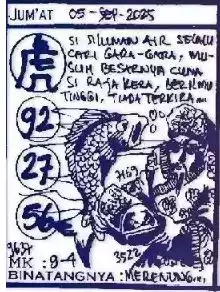 JUM'AT 05-SEP-2025
SI SILUMAN AIR SELALU
CARI GARA-GARA, MU-
SUH BESARNYA CUMA
SI RAJA KERA, BERILMU
TINGGI, TIADA TERKIRA...
虎
92
27
56
H69
3522
9634
MK : 9-4
BINATANGNYA : MERENUNG...